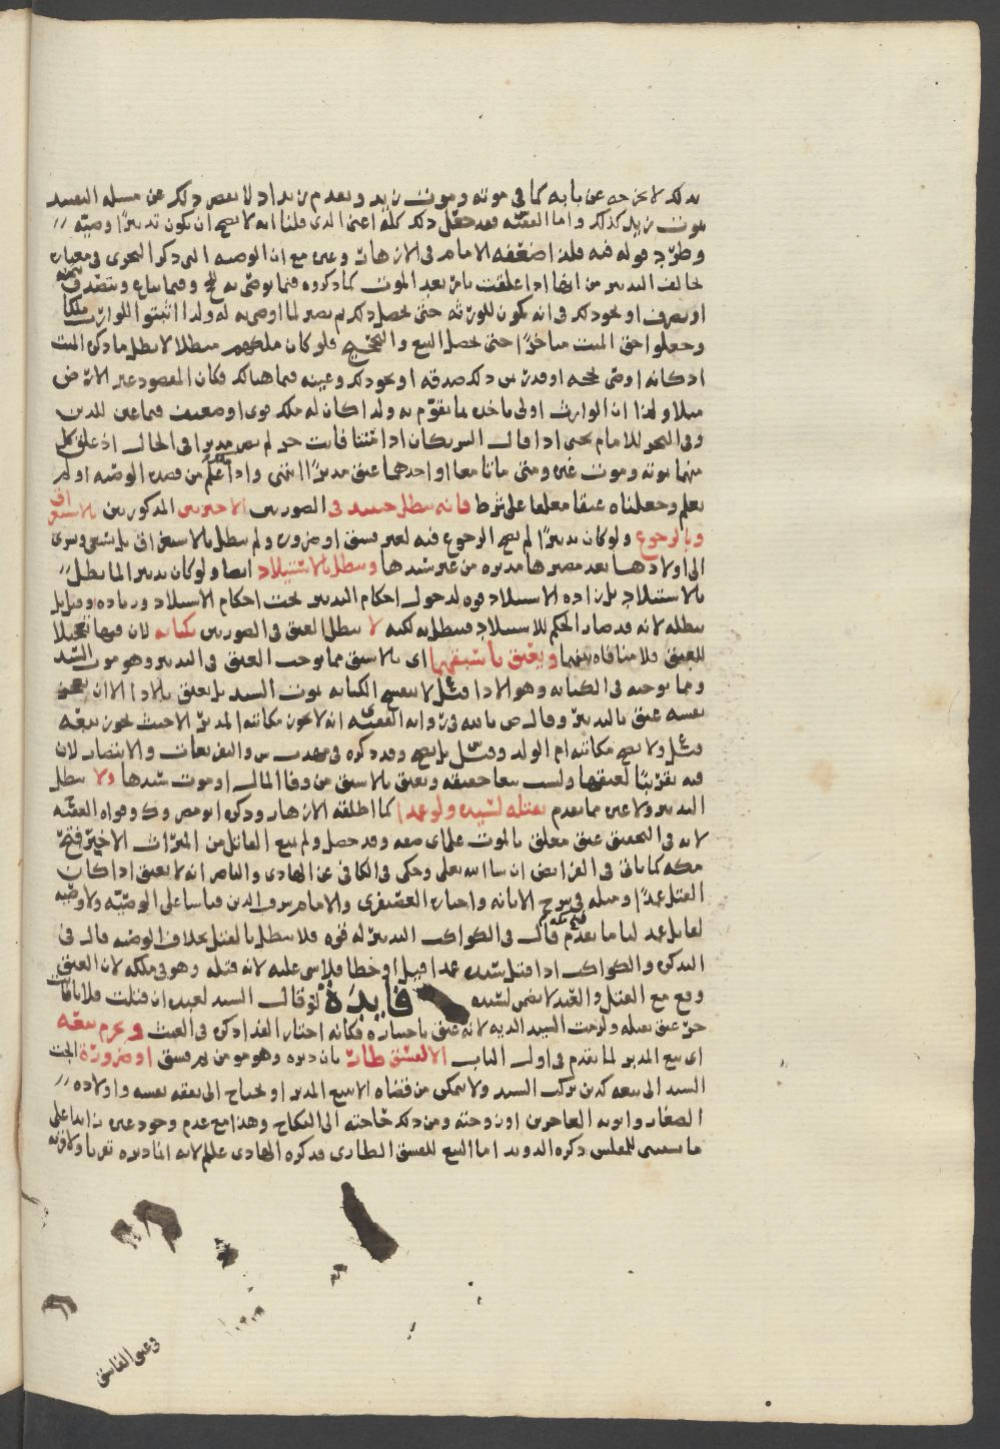 بذلك لا يخرجه عن بابه كما في موته وموت زيد وبعدم زيد اد لا يعصر ذلك عن مسله التقييد
بموت زيد كذلك واما العتق فقد حصل ذلك كله اعنى الدى قلنا انه لا يصح ان يكون تدبيرًا وصية
وطرد قوله فيه قلت اضعفه الامام في الازهار وغيره مع ان الوصيه التى ذكر النجرى فى معيار
تخالف التدبير من انها اذا علقت بامر بعد الموت كما ذكروه فيما يوصى به للحج وفيما يباع ويتصدق
او يصرف او نحو ذلك فى انه يكون للورثه حتى يحصل ذلك ثم يصير لما اوصى به له ولذا اثبتوا للوارث ملكا
وجعلوا حق الميت متاخرًا حتى يحصل البيع والتحجيج فلو كان مبطلا لابطل ما ذكره الميت
اذ كانه اوصى بحجه او قدر من ذلك صدقه او نحو ذلك وعينه فيما هنالك فكان المقصود غير الارض
مثلا ولهذا ان الوارث اولى باخذ ما يقوم به ولذا كان له ملك قوى او ضعيف فيما عين للدين
وفى البحر للامام يحيى اذا قال الشريكان اذا متنا فانت حر لم يصر مدبرا فى الحال اذ علق كل
منهما بموته وموت غيره ومتى ماتا معا او احدهما عتق مدبرًا واذا علم من قصده الوصيه او لم
يعلم وجعلناه عتقا معلقا على شرط فانه يبطل حينئذ فى الصورتين الاخيرتين المذكورتين بالاستغراق
وبالرجوع ولو كان تدبيرًا لم يصح الرجوع فيه لغير فسق او ضروره ولم يبطل بالاستغراق بل يسعى ويسرى
الى اولادها بعد مصيرها مدبره من غير سيدها ويبطل بالاستيلاد ايضا ولو كان تدبيرا لما بطل
بالاستيلاد بل زاده الاستيلاد قوه لدخول احكام التدبير تحت احكام الاستيلاد وزياده وقيل بل
يبطله لانه قد صار الحكم للاستيلاد فيبطل به لكنه لا يبطل العتق فى الصورتين بكتابه لان فيها تعجيلا
للعتق فلا منافاه بينهما ويعتق باسبقهما اى بالاسبق مما يوجب العتق فى التدبير وهو موت السيد
ومما يوجبه فى الكتابه وهو الادا وقيل لا يفسخ الكتابه بموت السيد بل يعتق بالادا الا ان يعجز
نفسه عتق بالتدبير وقال ص بالله فى روايه الفقيه انه لا يجوز مكاتبه المدبر الا حيث يجوز بيعه
وقيل ولا يصح مكاتبه ام الولد وقيل بل يصح وقد ذكره فى مهذب ص والتفريعات والانتصار لان
فيه تقريبًا لعتقها وليست بيعا حقيقه ويعتق بالاسبق من وفا المال او موت سيدها ولا يبطل
التدبير ولا غيره مما تقدم بقتله لسيده ولو عمدا كما اطلقه الازهار وذكره ابو مضر وك وقواه الفقيه
لانه فى التحقيق عتق معلق بالموت على اى صفه وقد حصل ولم يمنع القاتل من الميراث الا خبر فتح
مكه كما ياتى فى الفرايض ان شا الله تعلى وحكى فى الكافى عن الهادى والناصر انه لا يعتق اذا كان
القتل عمدًا ومثله فى شرح الابانه واختاره العصيفرى والامام شرف الدين قياسا على الوصيه ولا وصيه
لقاتل عمد لنا ما تقدم قال فى الكواكب التدبير له قوه فلا يبطل بالقتل بخلاف الوصيه قال فى
التذكره والكواكب اذا قتل سيده عمدا قتل او خطا فلا شى عليه لانه قتله وهو فى ملكه لان العتق
وقع مع القتل والعبد لا يضمن لسيده فايدة لو قال السيد لعبده ان قتلت فلانا فانت
حر عتق بقتله ولزمت السيد الديه لانه عتق باختياره فكانه اختار الفدا ذكره فى الغيث ويحرم بيعه
اى بيع المدبر لما تقدم فى اول الباب الا لفسق طار بان دبره وهو مومن ثم فسق او ضرورة الجت
السيد الى بيعه كدين يركب السيد ولا يتمكن من قضاه الا ببيع المدبر او يحتاج الى نفقه نفسه واولاده
الصغار وابويه العاجزين او زوجته ومن ذلك حاجته الى النكاح وهذا مع عدم وجود غيره زايدا على
ما يستثنى للمفلس ذكره الدوارى اما البيع للفسق الطارى فذكره الهادى علم لانه انما دبره تقربا ولا قربه
فى عتق الفاسق